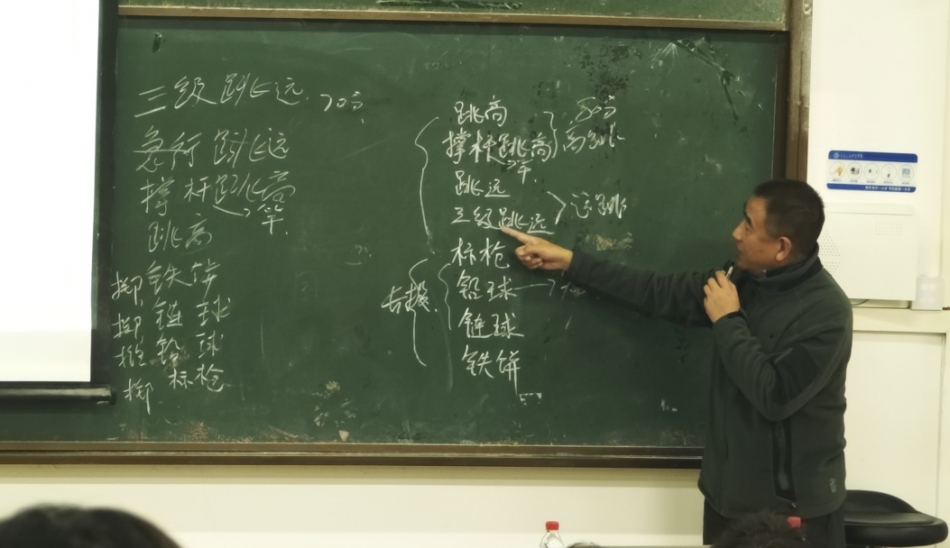 三级跳远
急行跳远
撑杆跳高
竿
跳高
掷铁饼
掷链球
推铅球
掷标枪
跳高
撑杆跳高
竿
高跳
跳远
三级跳远
远跳
标枪
铅球
链球
铁饼
长投